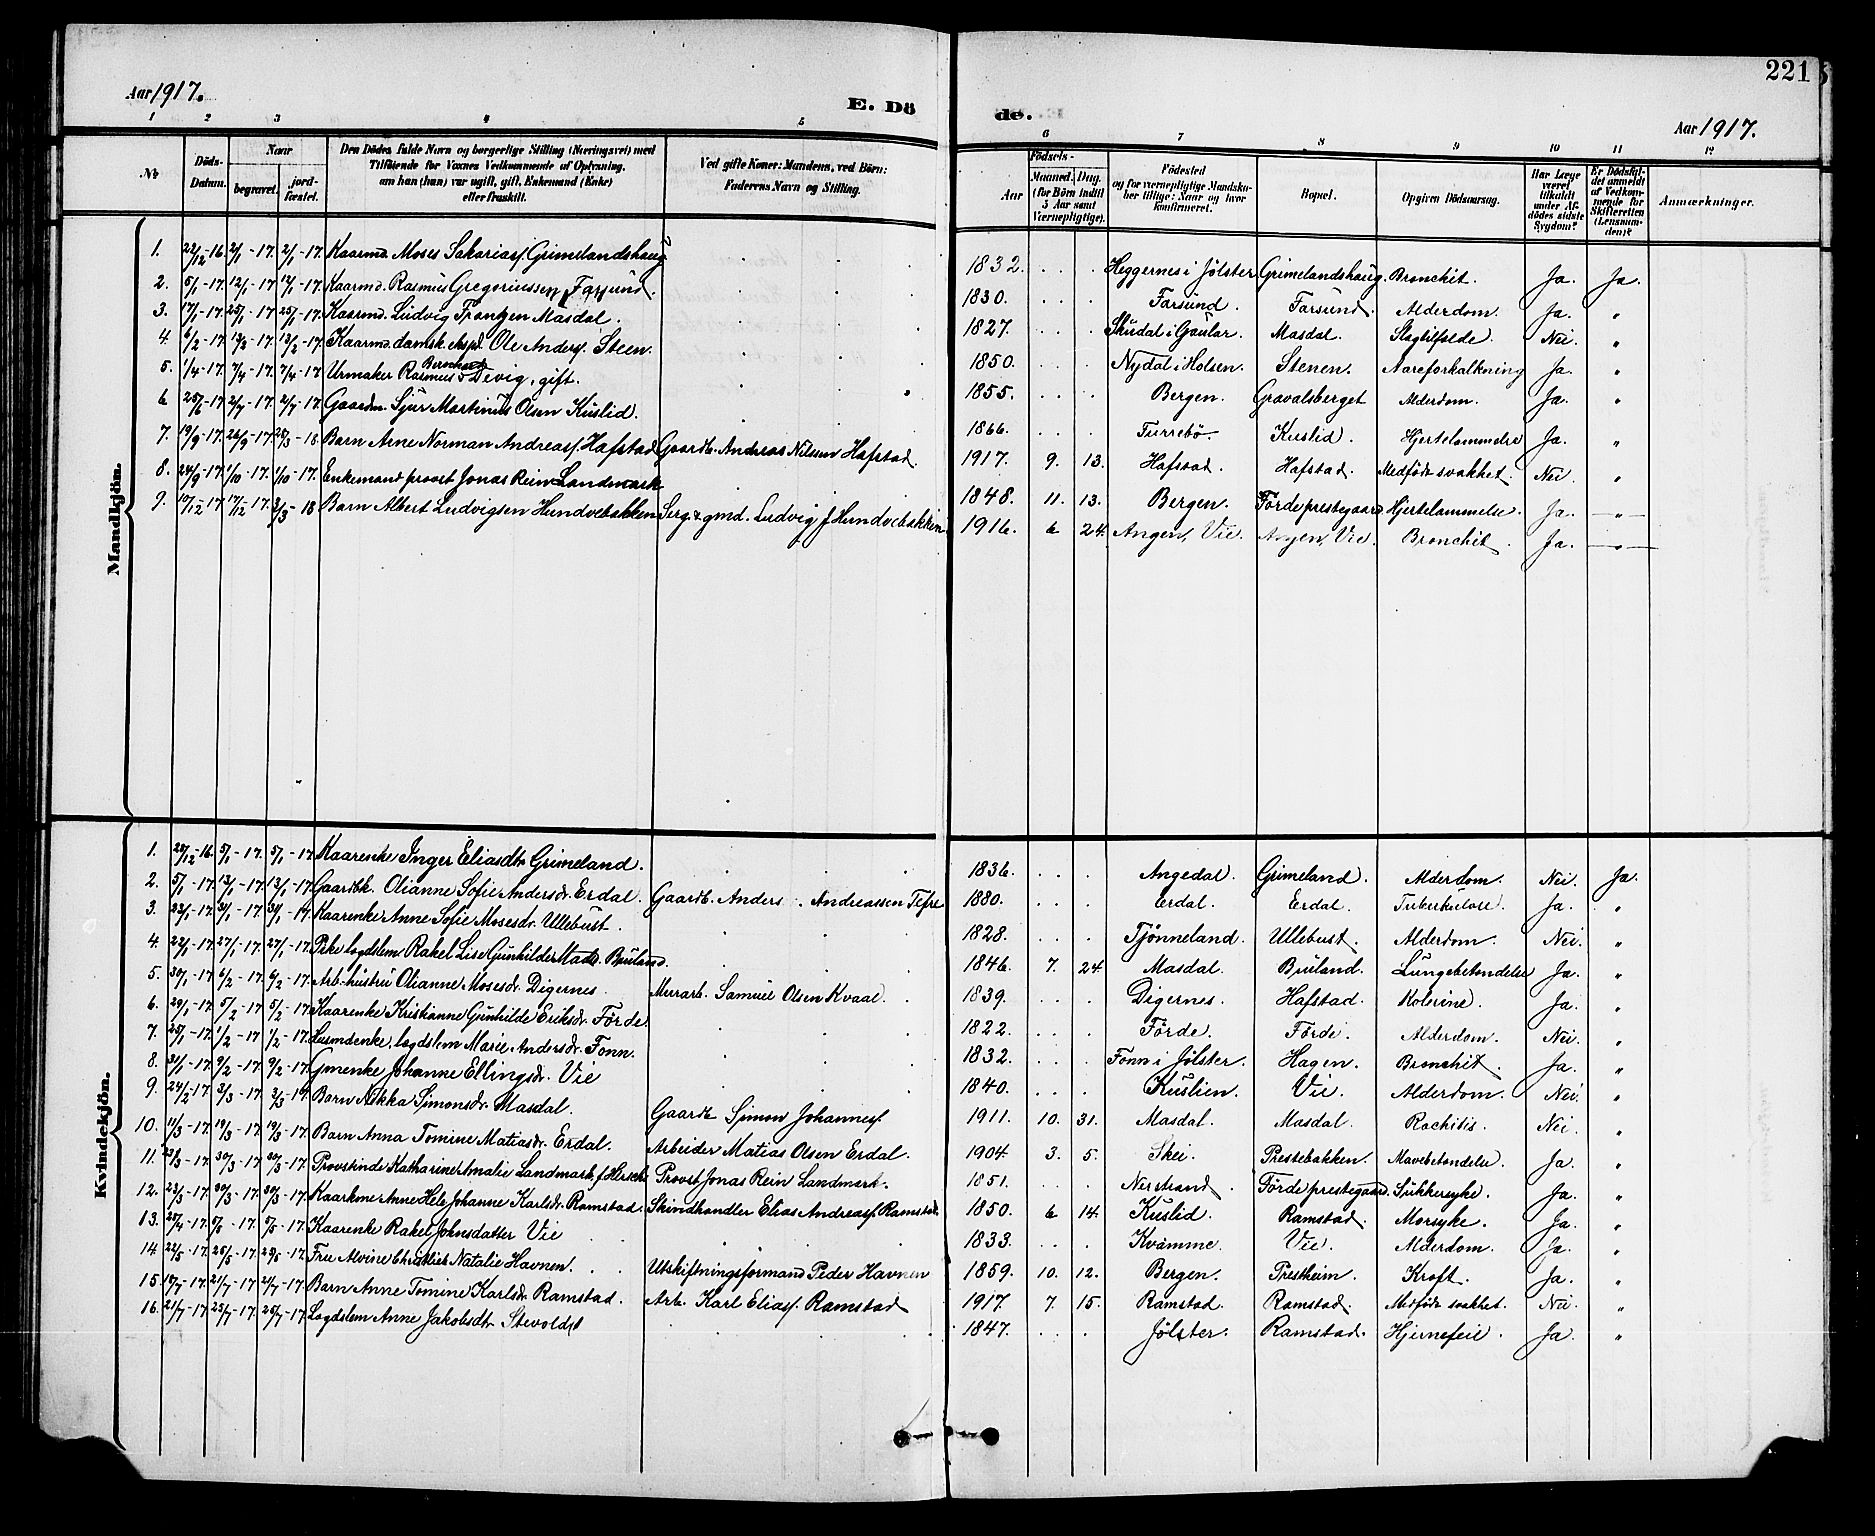 221
Aar 1917.
E. Dö
de.
Aar 1917.
1 2 3 4 5 6 7 8 9 10 11 12
No
Döds-Datum.
Naar
begravet.
jord-fæstet.
Den Dödes fulde Navn og borgerlige Stilling (Næringsvei) med
Tilföiende for Voxnes Vedkommende af Oplysning,
om han (hun) var ugift, gift, Enkemand (Enke)
eller fraskilt.
Ved gifte Koner: Mandens, ved Börn:
Faderens Navn og Stilling.
Födsels-
Aar
Maaned. Dag.
(for Börn indtil
5 Aar samt
Værnepligtige).
Födested
og for værnepligtige Mandska-
ber tillige: Naar og hvor
konfirmeret.
Bopæl.
Opgiven Dödsaarsag.
Har Læge
været
tilkaldt
under Af-
dödes sidste
Sygdom?
Er Dödsfal-
det anmeldt
af Vedkom-
mende for
Skifteretten
(Lensman-
den)?
Anmærkninger.
Mandkjön.
1. 22/12-16. 2/1-17. 2/1-17. Kaarmd. Moses Sakarias. Grimelandshaug 1832. Heggernes i Jölster Grimelandshaug. Bronchit. Ja. Ja.
2. 5/1-17. 12/1-17. 12/1-17. Kaarmd. Rasmus Gregoriussen Farsund. 1830. Farsund. Farsund. Alderdom. Ja. "
3. 17/1-17. 25/1-17. 25/1-17. Kaarmd. Ludvig Frantzen Masdal. 1827. Skudal i Gaular. Masdal. Slagtilfelde. Nei. "
4. 6/2-17. 13/2-17. 13/2-17. Kaarmd. damsk. eksp. Ole Anders. Steen. 1850. Nydal i Holsen. Stenen. Aareforkalkning Ja. "
5. 1/4-17. 7/4-17. 7/4-17. Urmaker Rasmus Bernhard Devig, gift. 1855. Bergen. Gravalsberget Alderdom. Ja. "
6 25/6-17. 2/7-17. 2/7-17. Gaardm. Sjur Martinus Olsen Kuslid. 1866. Furrebö. Kuslid. Hjertelammelse Ja. "
7. 19/9-17. 26/9-17. 28/3-18. Barn Arne Norman Andreas. Hafstad Gaardb. Andreas Nilsen Hafstad. 1917. 9. 13. Hafstad. Hafstad. Medfödt svakhet. Nei. "
8. 24/9-17. 1/10-17. 1/10-17. Enkemand provst Jonas Rein Landmark 1848. 11. 13. Bergen. Förde prestegaard Hjertelammelse. Ja. "
9. 10/12-17 17/12-17. 3/3-18 Barn Albert Ludvigsen Hundvebakken Serg. & gmd. Ludvig J Hundvebakken 1916. 6 24. Angen, Vie. Angen, Vie. Bronchit. Ja. "
Kvindekjön.
1. 28/12-16. 5/1-17. 5/1-17. Kaarenke Inger Eliasdtr Grimeland. 1836. Angedal. Grimeland. Alderdom. Nei. Ja.
2. 5/1-17. 13/1-17. 13/1-17. Gaardbk. Olianne Sofie Andersdr. Erdal. Gaardb. Anders Andreassen Tefre 1880. Erdal. Erdal. Tuberkulose. Ja. "
3. 23/1-17. 31/1-17. 31/1-17. Kaarenke Anne Sofie Mosesdr. Ullebust. 1828. Tjönneland. Ullebust. Alderdom. Nei. "
4. 22/1-17. 27/1-17. 27/1-17. Pike logdslem Rakel Lise Gunhilde Madsd. Bruland. 1846. 7. 24 Masdal. Bruland. Lungebetendelse Ja. "
5. 30/1-17. 6/2-17. 6/2-17. Arb.-hustru Olianne Mosesdr. Digernes. Murarb. Samuel Olsen Kvaal. 1839. Digernes. Hafstad. Kolerine. Ja. "
6. 29/1-17. 5/2-17. 5/2-17. Kaarenke Kristianne Gunhilde Eriksdr. Förde. 1822. Förde. Förde. Alderdom. Nei. "
7. 25/1-17. 1/2-17 1/2-17. Husmdenke, logdslem Marie Andersdr. Fonn. 1832. Fonn i Jölster. Hagen. Bronchit. Ja. "
8. 31/1-17. 9/2-17. 9/2-17. Gmenke Johanne Ellingsdr. Vie 1840. Kuslien. Vie. Alderdom. Nei. "
9. 24/2-17. 3/3-17. 3/3-17. Barn Nikka Simonsdr. Masdal. Gaardb Simon Johannes. 1911. 10. 31. Masdal. Masdal. Rachitis. Nei. "
10. 11/3-17. 19/3-17. 19/3-17. Barn Anna Tomine Matiasdr. Erdal. Arbeider Matias Olsen Erdal. 1904. 3. 5. Skei. Prestebakken. Mavebetendelse. Ja. "
11. 23/3-17. 30/3-17. 30/3-17. Provstinde Katharine Amalie Landmark, f. Herseth Provst Jonas Rein Landmark. 1851. Nerstrand. Förde prestegaard. Sukkersyke. Ja. "
12. 23/3-17. 30/3-17. 30/3-17. Kaarkone Anne Hele Johanne Karlsdr. Ramstad. Skindhandler Elias Andreas. Ramstad. 1850. 6 14. Kuslid. Ramstad. Morsyke. Ja. "
13. 28/4-17. 5/5-17. 5/5-17. Kaarenke Rakel Johnsdatter Vie 1833. Kvamme. Vie. Alderdom. Ja. "
14 22/5-17. 25/5-17. 29/5-17. Fru Alvine Christine Natalie Havnen. Utskiftningsformand Peder Havnen 1859. 10. 12. Bergen. Prestheim. Kræft. Ja. "
15. 17/7-17. 21/7-17 21/7-17. Barn Anne Tomine Karlsdr. Ramstad. Arb. Karl Elias. Ramstad 1917. 7. 15. Ramstad. Ramstad. Medfödt svakhet. Nei. "
16. 21/7-17. 25/7-17. 26/7-17. Logdslem Anne Jakobsdtr Stevoldet 1847. Jölster. Ramstad. Hjernefeil. Ja. "